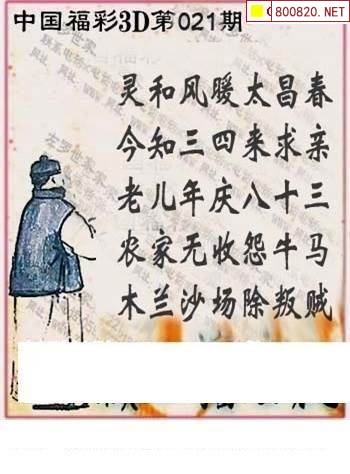 中国福彩3D第021期
800820.NET
灵和风暖太昌春
今知三四来求亲
老儿年庆八十三
农家无收怨牛马
木兰沙场除叛贼